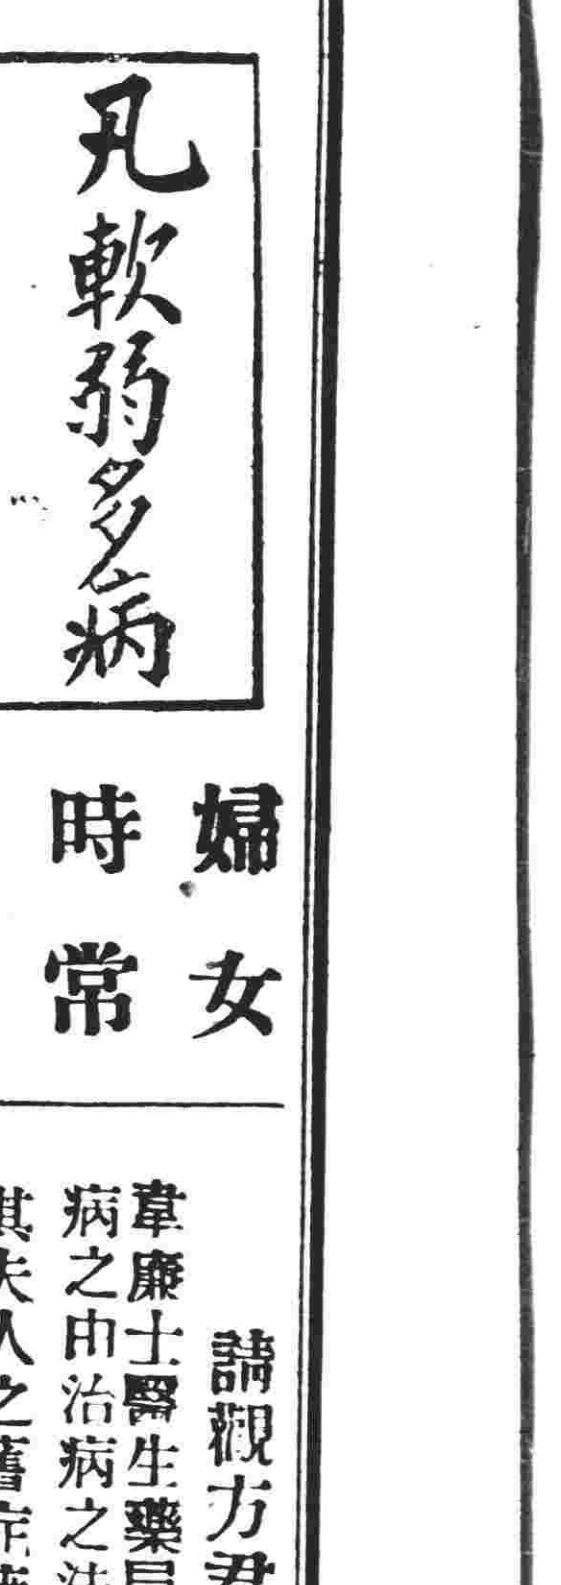 凡軟弱多病
婦女
時常
請觀方君
韋廉士醫生藥局
病之由治病之法
其夫人之舊症